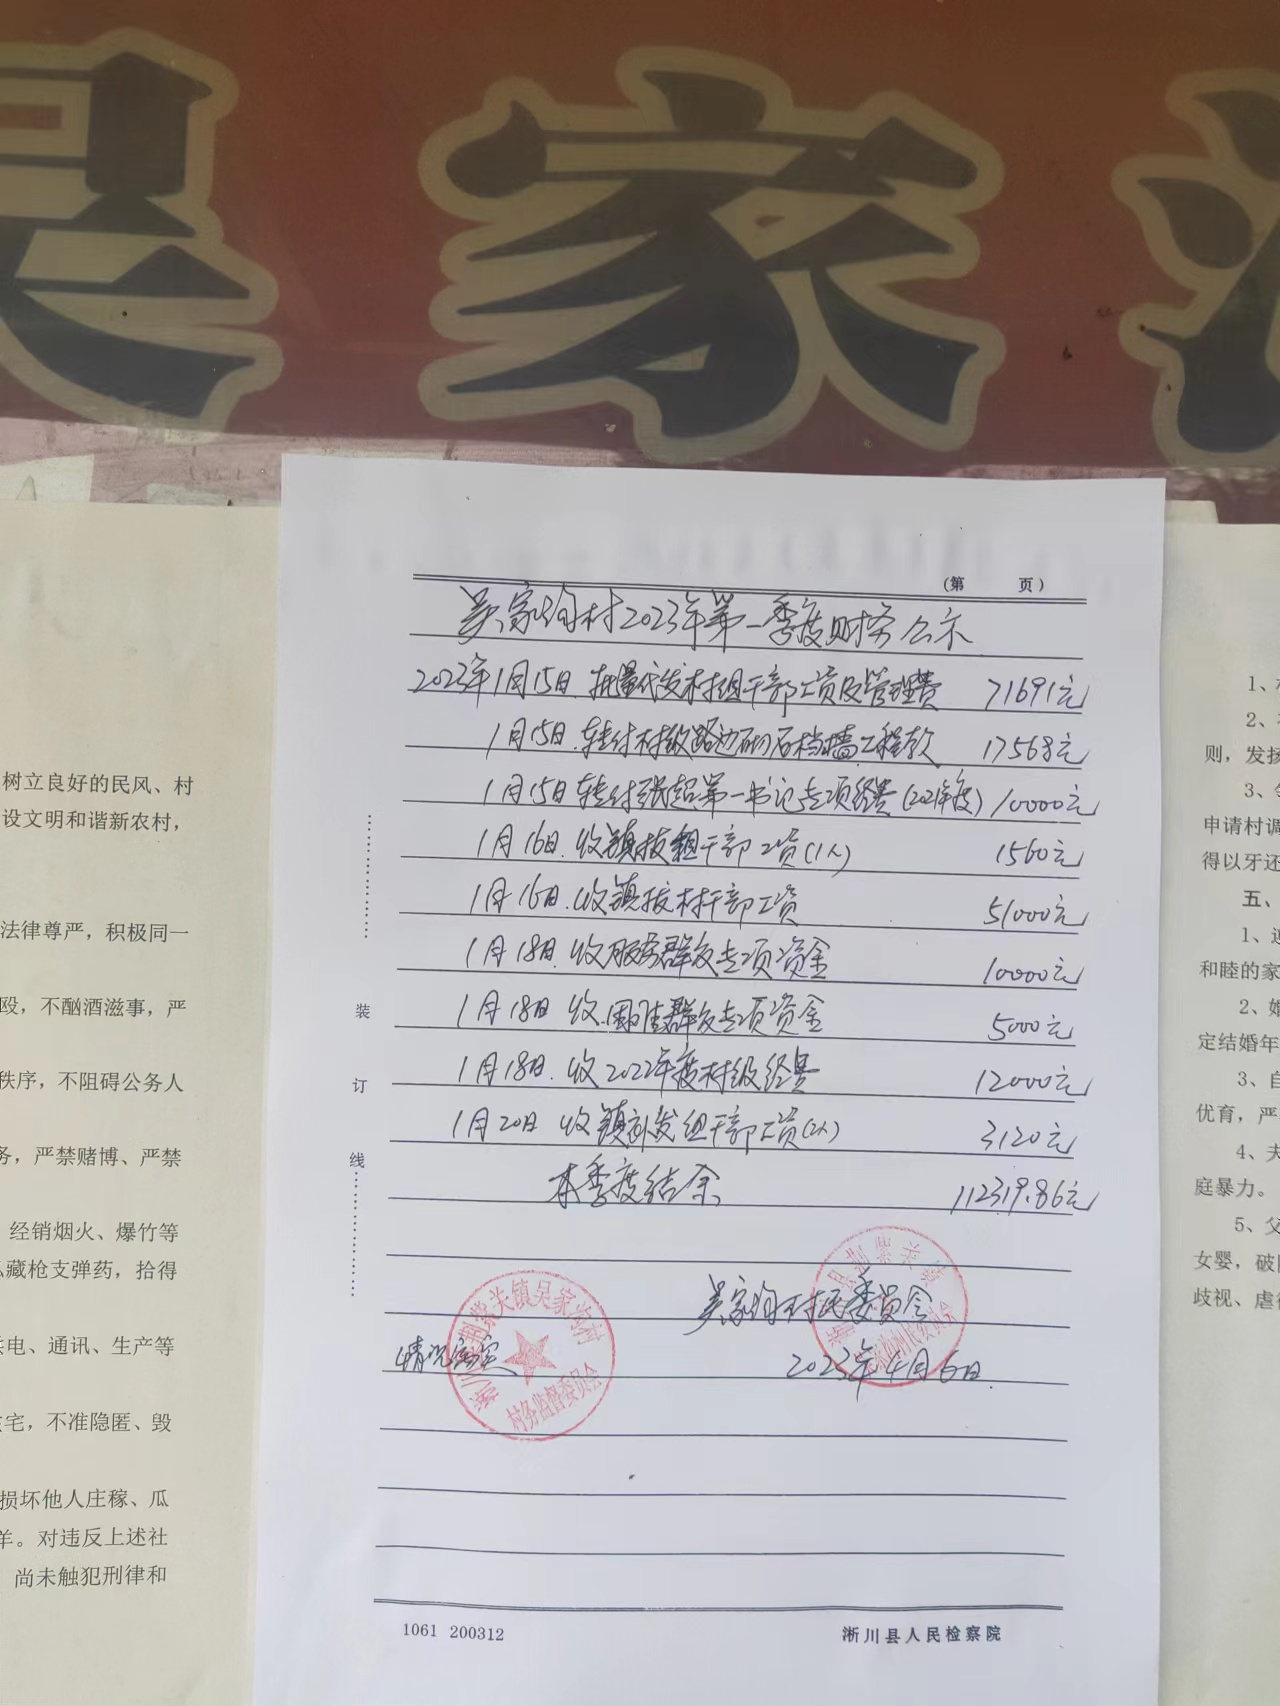 吴家沟
(第 页)
吴家沟村2023年第一季度财务公示
2023年1月15日.批量代发村组干部工资及管理费 71691元
1月15日.转付村级路边砌石档墙工程款 17568元
1月15日转付张超第一书记专项经费(2021年度) 10000元
1月16日.收镇拨组干部工资(1人) 1560元
1月16日.收镇拨村干部工资 51000元
1月18日.收服务群众专项资金 10000元
1月18日 收.困难群众专项资金 5000元
1月18日.收2022年度村级经费 12000元
1月20日 收镇补发组干部工资(2人) 3120元
本季度结余 112319.86元
吴家沟村民委员会
2023年4月6日.
情况属实
淅川县荆紫关镇吴家沟村
村务监督委员会
装
订
线
1061 200312
淅川县人民检察院
树立良好的民风、村
设文明和谐新农村，
法律尊严，积极同一
殴，不酗酒滋事，严
秩序，不阻碍公务人
务，严禁赌博、严禁
经销烟火、爆竹等
藏枪支弹药，拾得
电、通讯、生产等
宅，不准隐匿、毁
损坏他人庄稼、瓜
羊。对违反上述社
尚未触犯刑律和
1、
2、
则，发扬
3、
申请村调
得以牙还
五、
1、
和睦的家
2、婚
定结婚年
3、自
优育，严
4、夫
庭暴力。
5、父
女婴，破
歧视、虐待